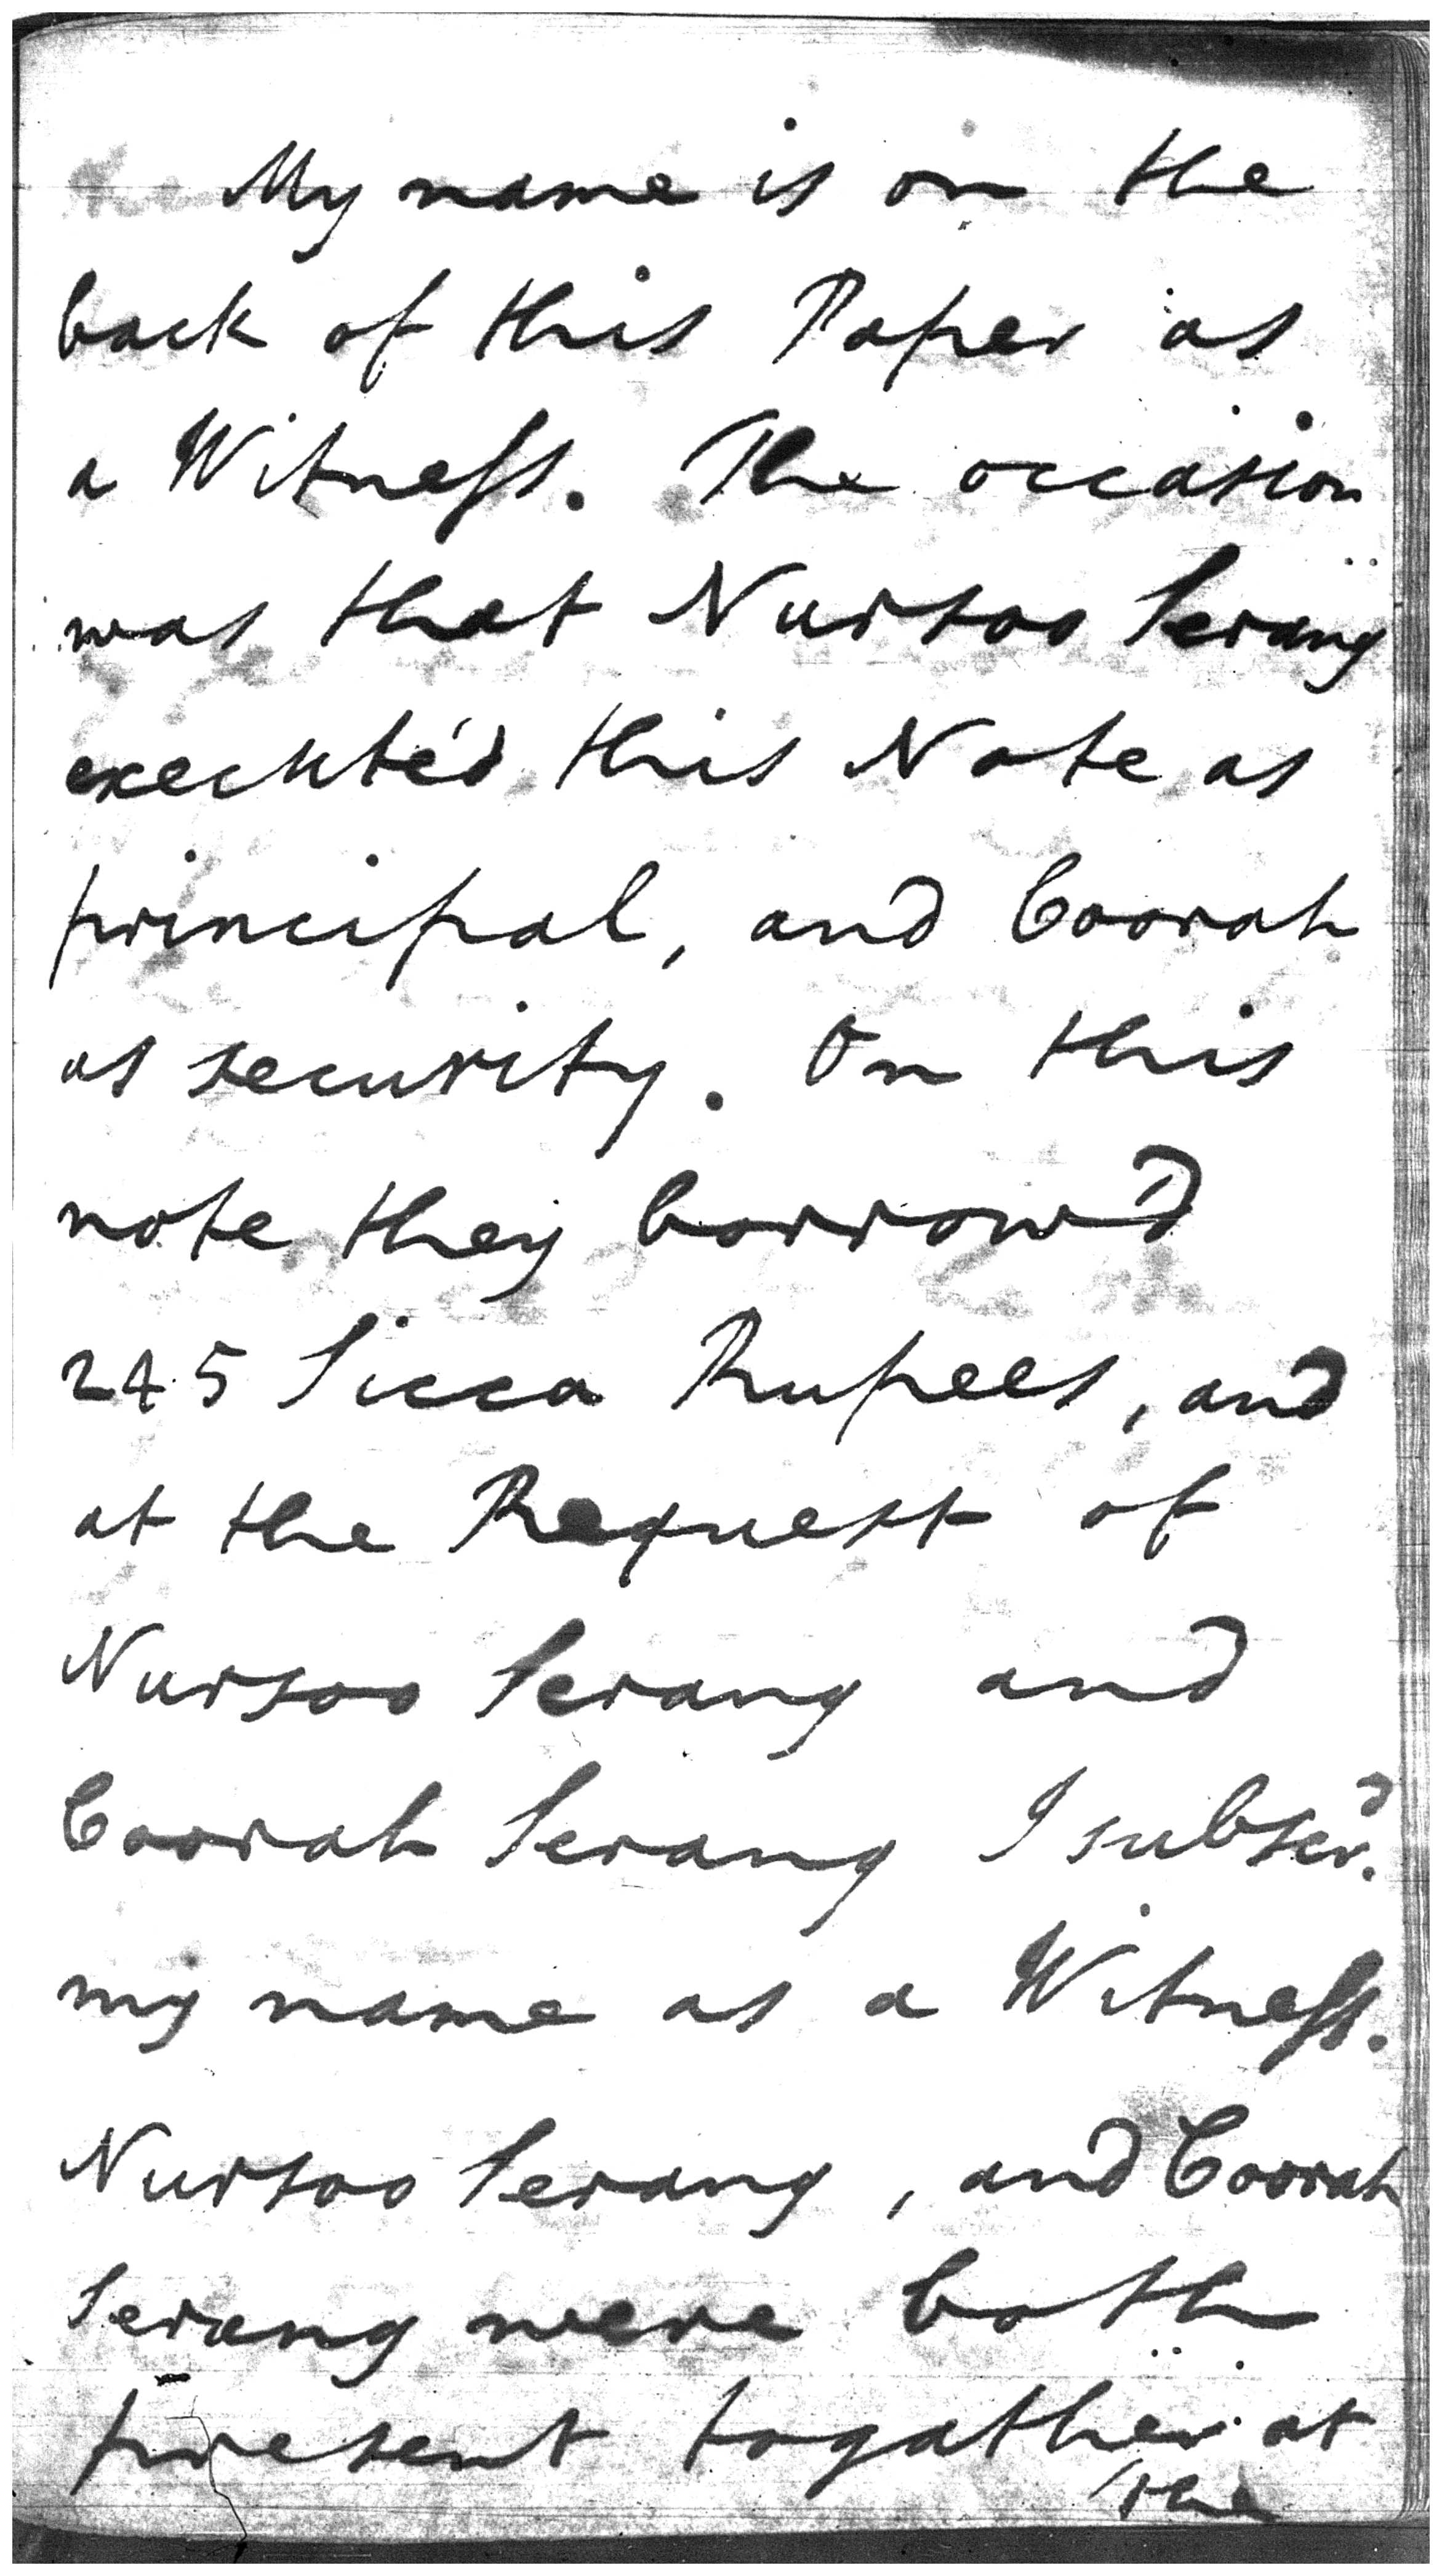 My name is on the
back of this Paper as
a Witness. The occasion
was that Nursoo Serang
executed this Note as
principal, and Coorah
as security. On this
note they borrow'd
245 Sicca Rupees, and
at the Request of
Nursoo Serang and
Coorah Serang I subscr.d
my name as a Witness.
Nursoo Serang, and Coorah
Serang were both
present togather at
the